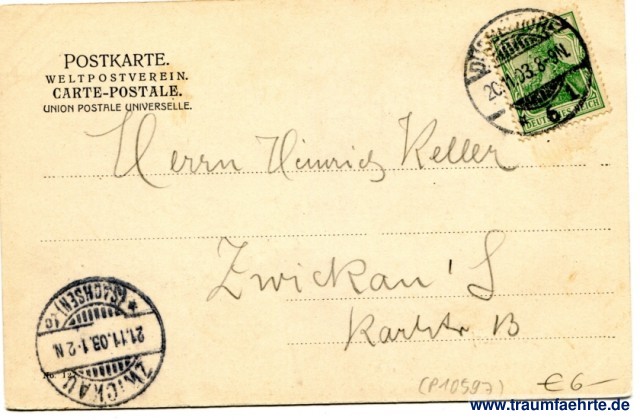 POSTKARTE.
WELTPOSTVEREIN.
CARTE-POSTALE.
UNION POSTALE UNIVERSELLE.
DÜSSELDORF
20.11.03.8-9N.
* 1
DEUTSCHES REICH
Herrn Heinrich Keller
Zwickau i/S
Karlstr 13
(SACHSEN)
21.11.03.1-2N.
ZWICKAU
No. 12
(P10597)
€6-
www.traumfaehrte.de